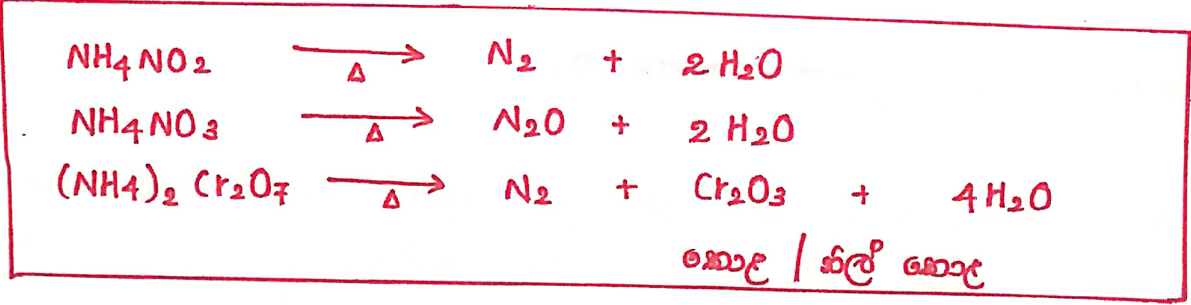 NH₄NO₂ →Δ N₂ + 2H₂O
NH₄NO₃ →Δ N₂O + 2 H₂O
(NH₄)₂ Cr₂O₇ →Δ N₂ + Cr₂O₃ + 4H₂O
කොළ / නිල් කොළ